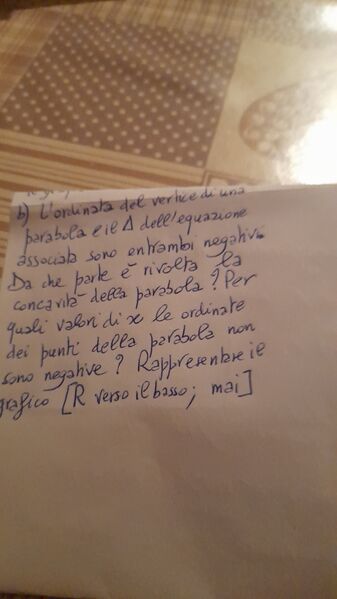 b) L'ordinata del vertice di una
parabola e il Δ dell'equazione
associata sono entrambi negativi.
Da che parte è rivolta la
concavità della parabola? Per
quali valori di x le ordinate
dei punti della parabola non
sono negative? Rappresentare il
grafico [R verso il basso; mai]